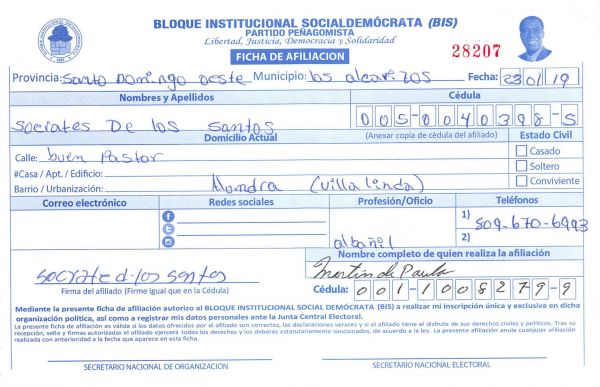 BLOQUE INSTITUCIONAL SOCIALDEMÓCRATA (BIS)
PARTIDO PEÑAGOMISTA
Libertad, Justicia, Democracia y Solidaridad
FICHA DE AFILIACION
28207
Provincia: Santo Domingo oeste Municipio: los alcarrizos Fecha: 23/01/19
Nombres y Apellidos Cédula
Socrates De los Santos 005-0040398-5
Domicilio Actual (Anexar copia de cédula del afiliado) Estado Civil
Calle: buen Pastor Casado
#Casa / Apt. / Edificio: Soltero
Barrio / Urbanización: (Villa linda) Conviviente
Correo electrónico Redes sociales Profesión/Oficio Teléfonos
1) 809-670-6993
albañil 2)
Nombre completo de quien realiza la afiliación
socrate d-los santos Martin de Paula
Firma del afiliado (Firme igual que en la Cédula) Cédula: 001-1008279-9
Mediante la presente ficha de afiliación autorizo al BLOQUE INSTITUCIONAL SOCIAL DEMÓCRATA (BIS) a realizar mi inscripción única y exclusiva en dicha
organización política, así como a registrar mis datos personales ante la Junta Central Electoral.
La presente ficha de afiliación es válida si los datos ofrecidos por el afiliado son correctos, las declaraciones veraces y si el afiliado tiene el disfrute de sus derechos civiles y políticos. Tras su
recepción, sello y firmas autorizadas el afiliado ejercerá todos los derechos y los deberes estatutariamente sancionados, de acuerdo a la ley. La presente afiliación anula cualquier afiliación
realizada con anterioridad a la fecha que aparece en esta ficha.
SECRETARIO NACIONAL DE ORGANIZACIÓN SECRETARIO NACIONAL ELECTORAL